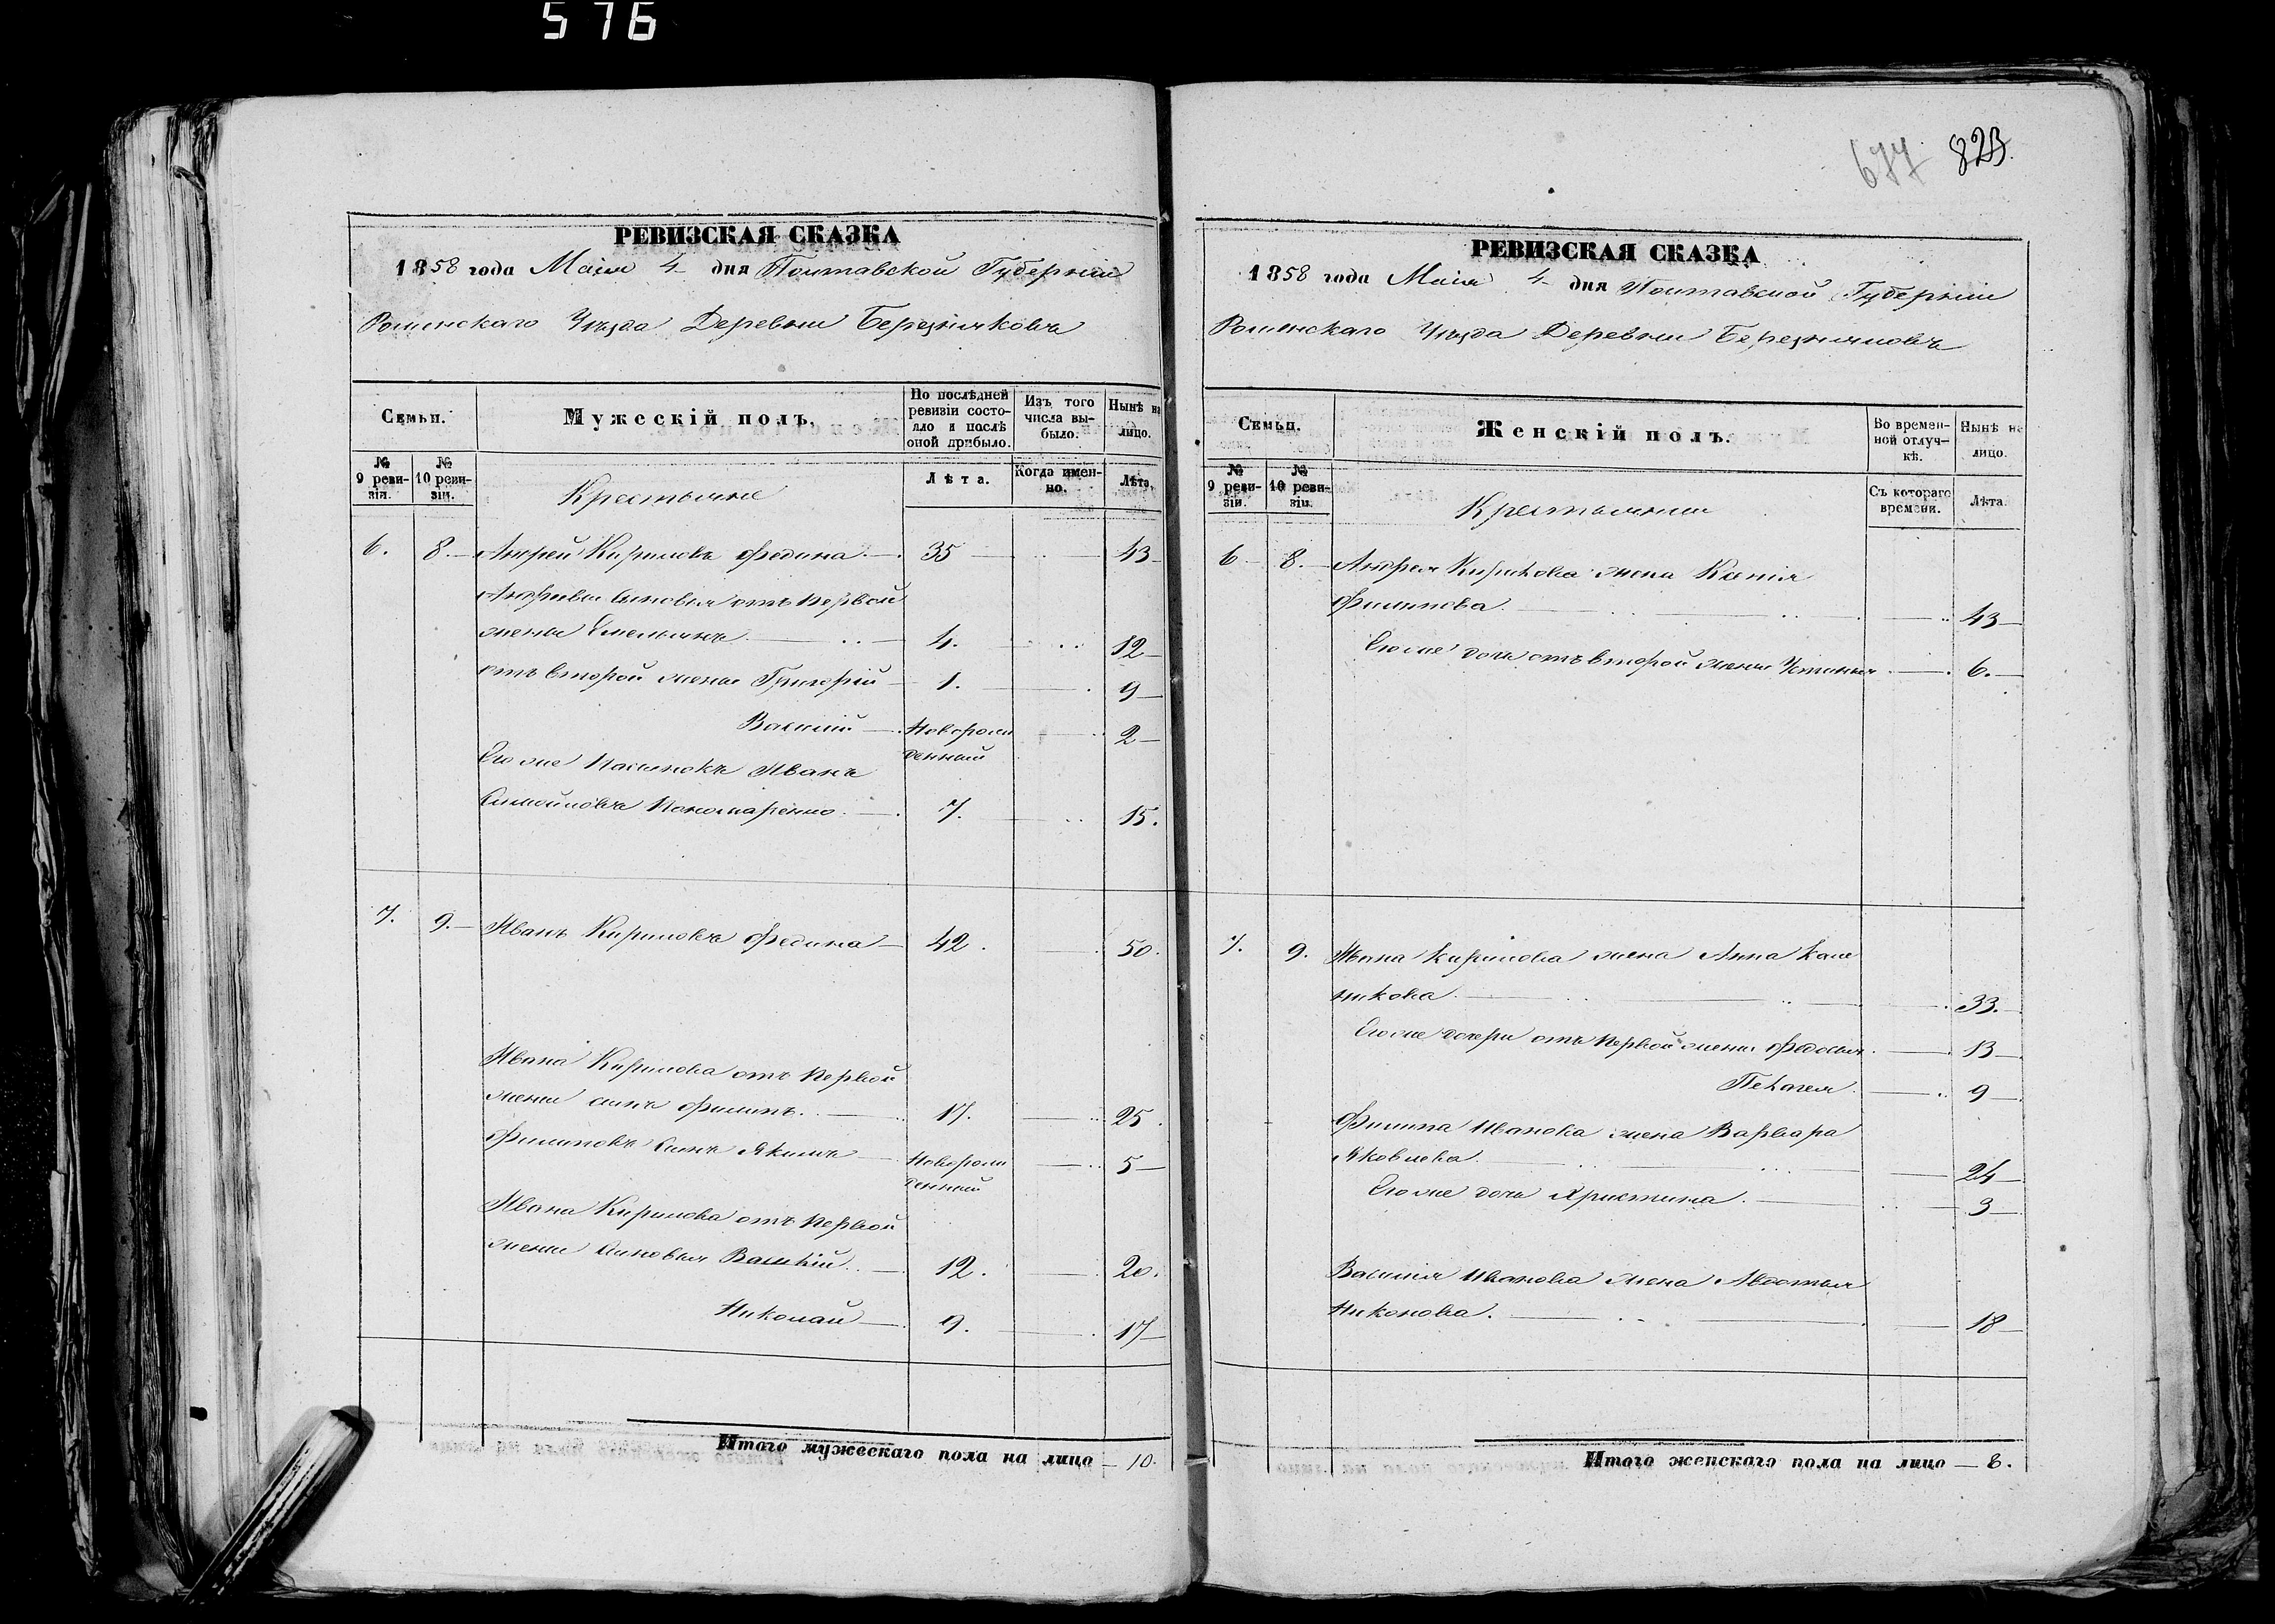 576
677 823.
РЕВИЗСКАЯ СКАЗКА
1858 года Маія 4 дня Полтавской Губерніи
Роменскаго Уѣзда Деревни Березняковъ
Семьи.
Мужескій полъ.
По послѣдней ревизіи состояло и послѣ оной прибыло.
Изъ того числа выбыло.
Нынѣ на лицо.
№ 9 ревизіи.
№ 10 ревизіи.
Крестьяне
Лѣта.
Когда именно.
Лѣта.
6. 8. Андрей Кириловъ Федина 35 43
Андреевы сыновья отъ первой
жены Емельянъ 4. 12
отъ второй жены Григорій 1. 9
Василій Новорож 2
денный
Его же пасынокъ Иванъ
Пономаренко 7. 15.
7. 9. Иванъ Кириловъ Федина 42. 50.
Ивана Кирилова отъ первой
жены сынъ Филипъ. 17. 25.
Филиповъ сынъ Якимъ Новорож 5
денный
Ивана Кирилова отъ первой
жены сыновья Василій 12. 20.
Николай 9. 17
Итого мужескаго пола на лицо 10.
РЕВИЗСКАЯ СКАЗКА
1858 года Маія 4 дня Полтавской Губерніи
Роменскаго Уѣзда Деревни Березняковъ
Семьи.
Женскій полъ.
Во временной отлучкѣ.
Нынѣ на лицо.
№ 9 ревизіи.
№ 10 ревизіи.
Съ котораго времени.
Лѣта.
6 8. Андрея Кирилова жена Ксенія
Филипова. 43
Его же дочь отъ второй жены Устинья 6.
7. 9. Ивана Кирилова жена Анна Кале
никова. 33.
Его же дочери отъ первой жены Федосья 13
Пелагея 9
Филипа Иванова жена Варвара
Яковлева. 24
Его же дочь Христина. 3
Василія Иванова жена Авдотья
Никонова. 18
Итого женскаго пола на лицо 8.